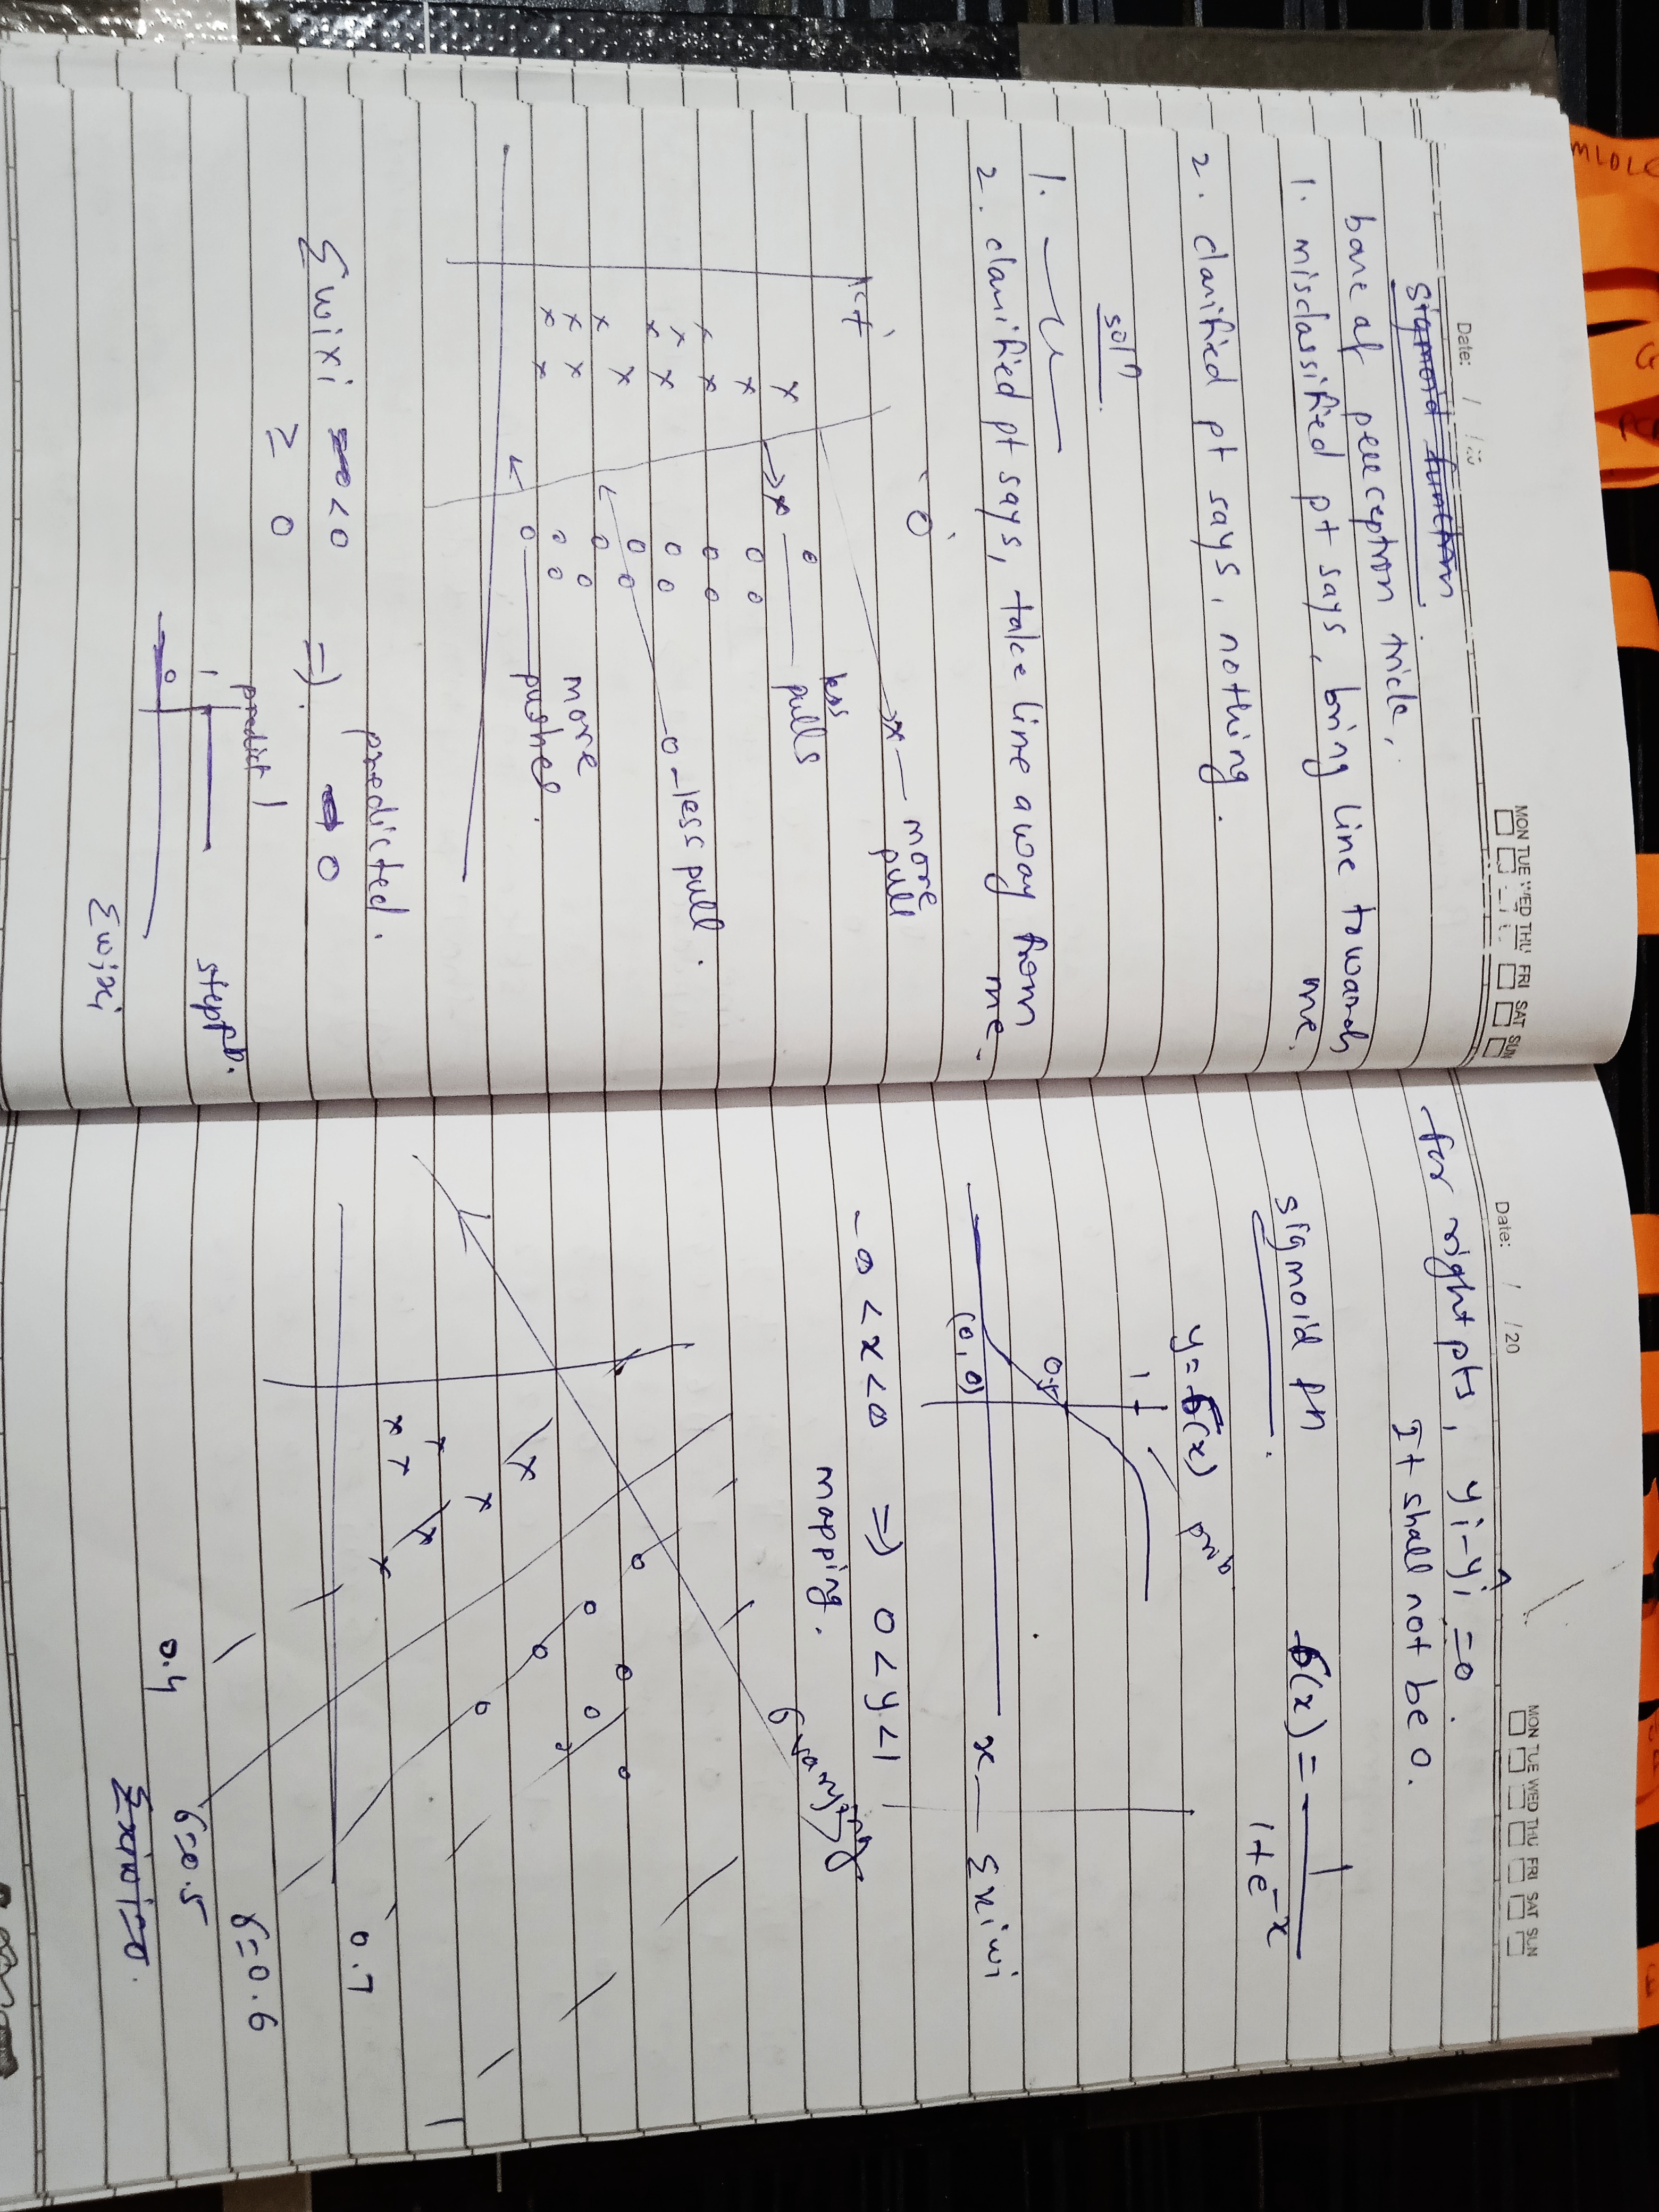 Date: / /20
MON TUE WED THU FRI SAT SUN
Sigmoid function
bane of perceptron trick,
1. misclassified pt says, bring line towards
me.
2. classified pt says, nothing.
soln
1.
2. classified pt says, take line away from
me.
more pull
less
pulls
less pull.
more
pushes.
predicted.
Σwixi <0 => 0
≥ 0
predict 1
1
0
step fn.
Σwixi
Date: / /20
MON TUE WED THU FRI SAT SUN
for right pts, yi-ŷi = 0
It shall not be 0.
sigmoid fn
σ(x) = 1
1+e^-x
y=σ(x) prob
1
0.5
(0,0)
x — Σxiwi
-∞ < x < ∞ => 0 < y < 1
mapping.
0.7
σ=0.6
σ=0.5
0.4
Σxiwi=0.